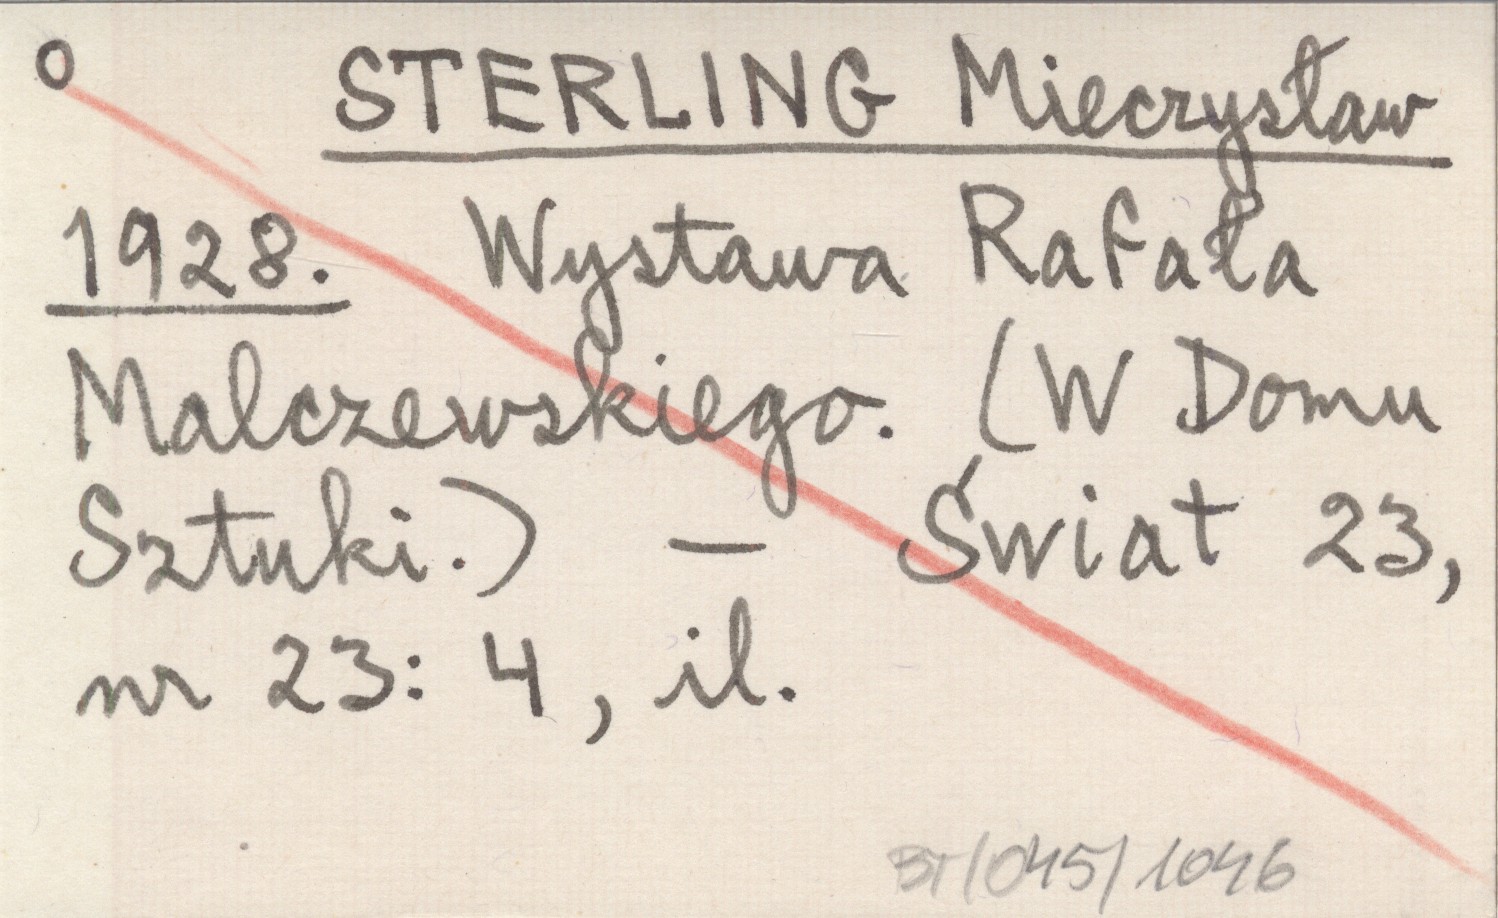 O STERLING Mieczysław
1928. Wystawa Rafała
Malczewskiego. (W Domu
Sztuki.) — Świat 23,
nr 23: 4, il.
BT/045/1046